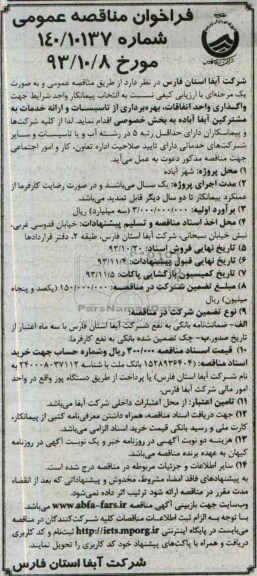 فراخوان مناقصه عمومی
شماره ۱۴۰/۱۰۱۳۷
مورخ ۹۳/۱۰/۸
شرکت آبفا استان فارس در نظر دارد از طریق مناقصه عمومی و به صورت
یک مرحله‌ای با ارزیابی کیفی نسبت به انتخاب پیمانکار واجد شرایط جهت
واگذاری واحد اتفاقات، بهره‌برداری از تاسیسات و ارائه خدمات به
مشترکین آبفا آباده به بخش خصوصی اقدام نماید. لذا از کلیه شرکت‌ها
و پیمانکاران دارای حداقل رتبه ۵ در رشته آب و یا تاسیسات و سایر
شرکت‌های خدماتی دارای تایید صلاحیت اداره تعاون، کار و امور اجتماعی
جهت مناقصه مذکور دعوت به عمل می‌آید.
۱) محل پروژه: شهر آباده
۲) مدت اجرای پروژه: یک سال می‌باشد و در صورت رضایت کارفرما از
عملکرد پیمانکار تا دو سال دیگر قابل تمدید می‌باشد.
۳) برآورد اولیه: ۳/۰۰۰/۰۰۰/۰۰۰ (سه میلیارد) ریال
۴) محل اخذ اسناد مناقصه و تسلیم پیشنهادات: خیابان قدوسی غربی،
نبش خیابان سبحانی، شرکت آبفا استان فارس، طبقه ۲، دفتر قراردادها
۵) تاریخ نهایی فروش اسناد: ۹۳/۱۰/۲۰
۶) تاریخ نهایی قبول پیشنهادات: ۹۳/۱۱/۴
۷) تاریخ کمیسیون بازگشایی پاکات: ۹۳/۱۱/۵
۸) مبلغ تضمین شرکت در مناقصه: ۱۵۰/۰۰۰/۰۰۰ (یکصد و پنجاه
میلیون) ریال
۹) نوع تضمین شرکت در مناقصه:
الف - ضمانت‌نامه بانکی به نفع شرکت آبفا استان فارس با سه ماه اعتبار از
تاریخ صدور. ب- چک تضمین شده بانکی به نفع کارفرما.
۱۰) قیمت اسناد مناقصه ۳۰۰/۰۰۰ ریال وشماره حساب جهت خرید
اسناد مناقصه: (۱۵۲۸۹۳۶۴۰۴ بانک ملت با شناسه ۲۴۰۰۰۸۰۳۷۱۱۲ به
نام شرکت آبفا استان فارس) یا پرداخت از طریق دستگاه پوز واقع در واحد
امور مالی شرکت آبفا فارس.
۱۱) تامین اعتبار: از محل اعتبارات داخلی شرکت آبفا می‌باشد.
۱۲) جهت دریافت اسناد مناقصه، همراه داشتن معرفی‌نامه کتبی از پیمانکار،
کارت ملی و رسید بانکی قیمت خرید اسناد الزامی می‌باشد.
۱۳) هزینه دو نوبت آگهی در روزنامه خبر و یک نوبت آگهی در روزنامه
کیهان به عهده برنده مناقصه می‌باشد.
۱۴) سایر اطلاعات و جزئیات مربوطه در مناقصه درج شده است.
به پیشنهادهای فاقد امضاء مشروط، مخدوش و پیشنهاداتی که بعد از انقضاء
مدت مقرر در مناقصه ارائه شود ترتیب اثر داده نمی‌شود.
وب‌سایت جهت بازبینی آگهی مناقصه www.abfa-fars.ir می‌باشد.
با توجه به الزام ثبت اطلاعات مناقصات کلیه شرکت‌کنندگان در مناقصه
می‌بایست در پایگاه اینترنتی http://iets.mporg.ir ثبت‌نام و کد کاربری
دریافت و همراه با پاکت‌های پیشنهاد خود کد کاربری را تحویل نمایند.
شرکت آبفا استان فارس